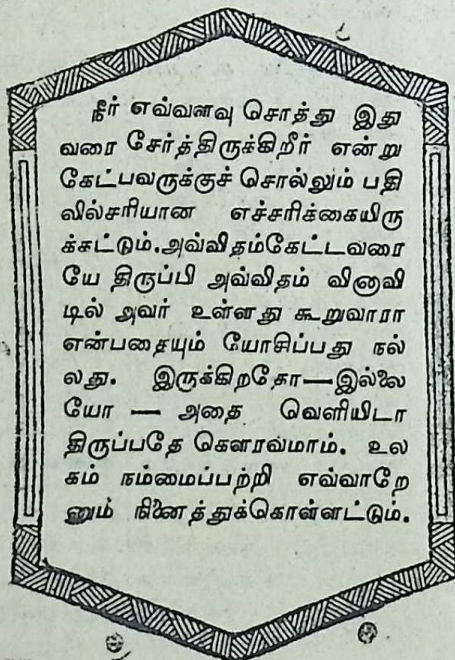 நீர் எவ்வளவு சொத்து இது
வரை சேர்த்திருக்கிறீர் என்று
கேட்பவருக்குச் சொல்லும் பதி
வில்சரியான எச்சரிக்கையிரு
க்கட்டும். அவ்விதம்கேட்டவரை
யே திருப்பி அவ்விதம் வினாவி
டில் அவர் உள்ளது கூறுவாரா
என்பதையும் யோசிப்பது நல்
லது. இருக்கிறதோ—இல்லை
யோ — அதை வெளியிடா
திருப்பதே கௌரவமாம். உல
கம் நம்மைப்பற்றி எவ்வாறே
னும் நினைத்துக்கொள்ளட்டும்.